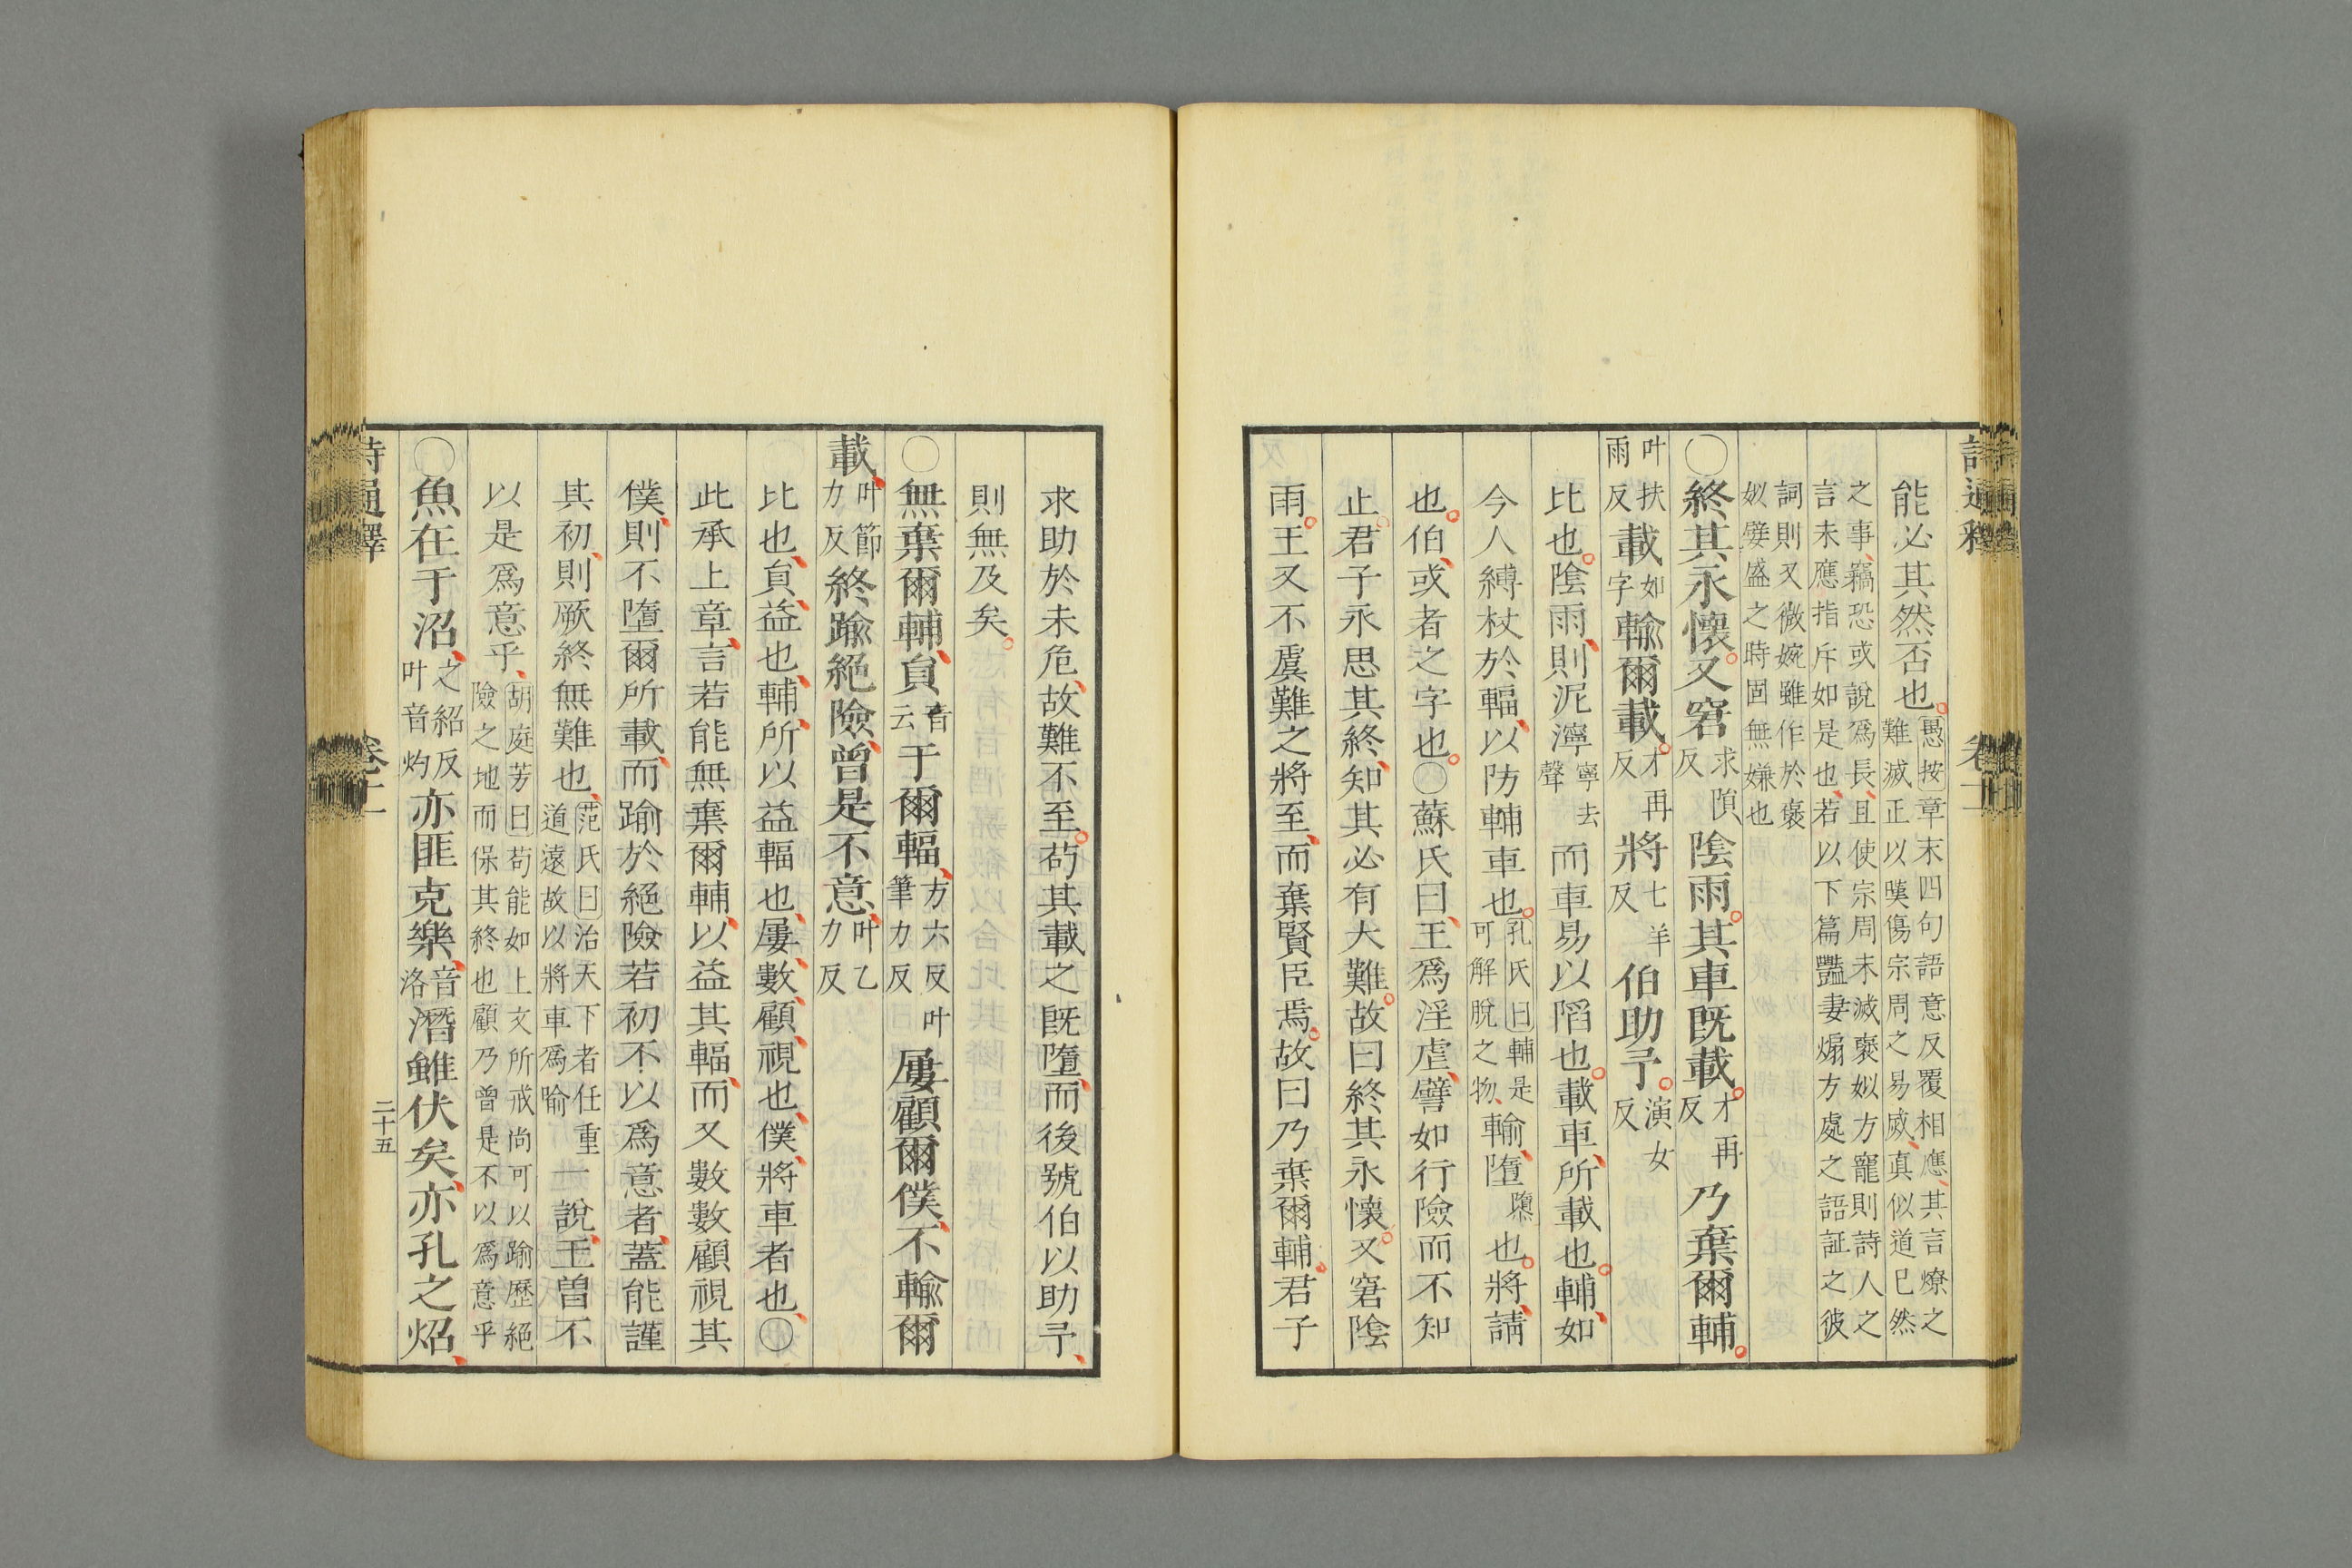 能必其然否也愚按章末四句語意反覆相應其言燎之難滅正以嘆傷宗周之易烕真似道已然
之事竊恐或說爲長且使宗周未滅褒姒方寵則詩人之言未應指斥如是也若以下篇豔妻煽方處之語証之彼
詞則又微婉雖作於褒姒嬖盛之時固無嫌也
〇終其永懷又窘求隕反陰雨其車既載才再反乃棄爾輔
叶扶雨反載如字輸爾載才再反將七羊反伯助予演女反
比也陰雨則泥濘寧去聲而車易以陷也載車所載也輔如
今人縛杖於輻以防輔車也孔氏曰輔是可解脫之物輸墮隳也將請
也伯或者之字也〇蘇氏曰王爲淫虐譬如行險而不知
止君子永思其終知其必有大難故曰終其永懷又窘陰
雨王又不虞難之將至而棄賢臣焉故曰乃棄爾輔君子
求助於未危故難不至苟其載之既墮而後號伯以助予
則無及矣
〇無棄爾輔員音云于爾輻方六反叶筆力反屢顧爾僕不輸爾
載叶節力反終踰絕險曾是不意叶乙力反
比也員益也輔所以益輻也屢數顧視也僕將車者也〇
此承上章言若能無棄爾輔以益其輻而又數數顧視其
僕則不墮爾所載而踰於絕險若初不以爲意者蓋能謹
其初則厥終無難也范氏曰治天下者任重道遠故以將車爲喻一說王曾不
以是爲意乎胡庭芳曰苟能如上文所戒尚可以踰歷絕險之地而保其終也顧乃曾是不以爲意乎
〇魚在于沼之紹反叶音灼亦匪克樂音洛潛雖伏矣亦孔之炤
詩通釋 卷十一 二十五